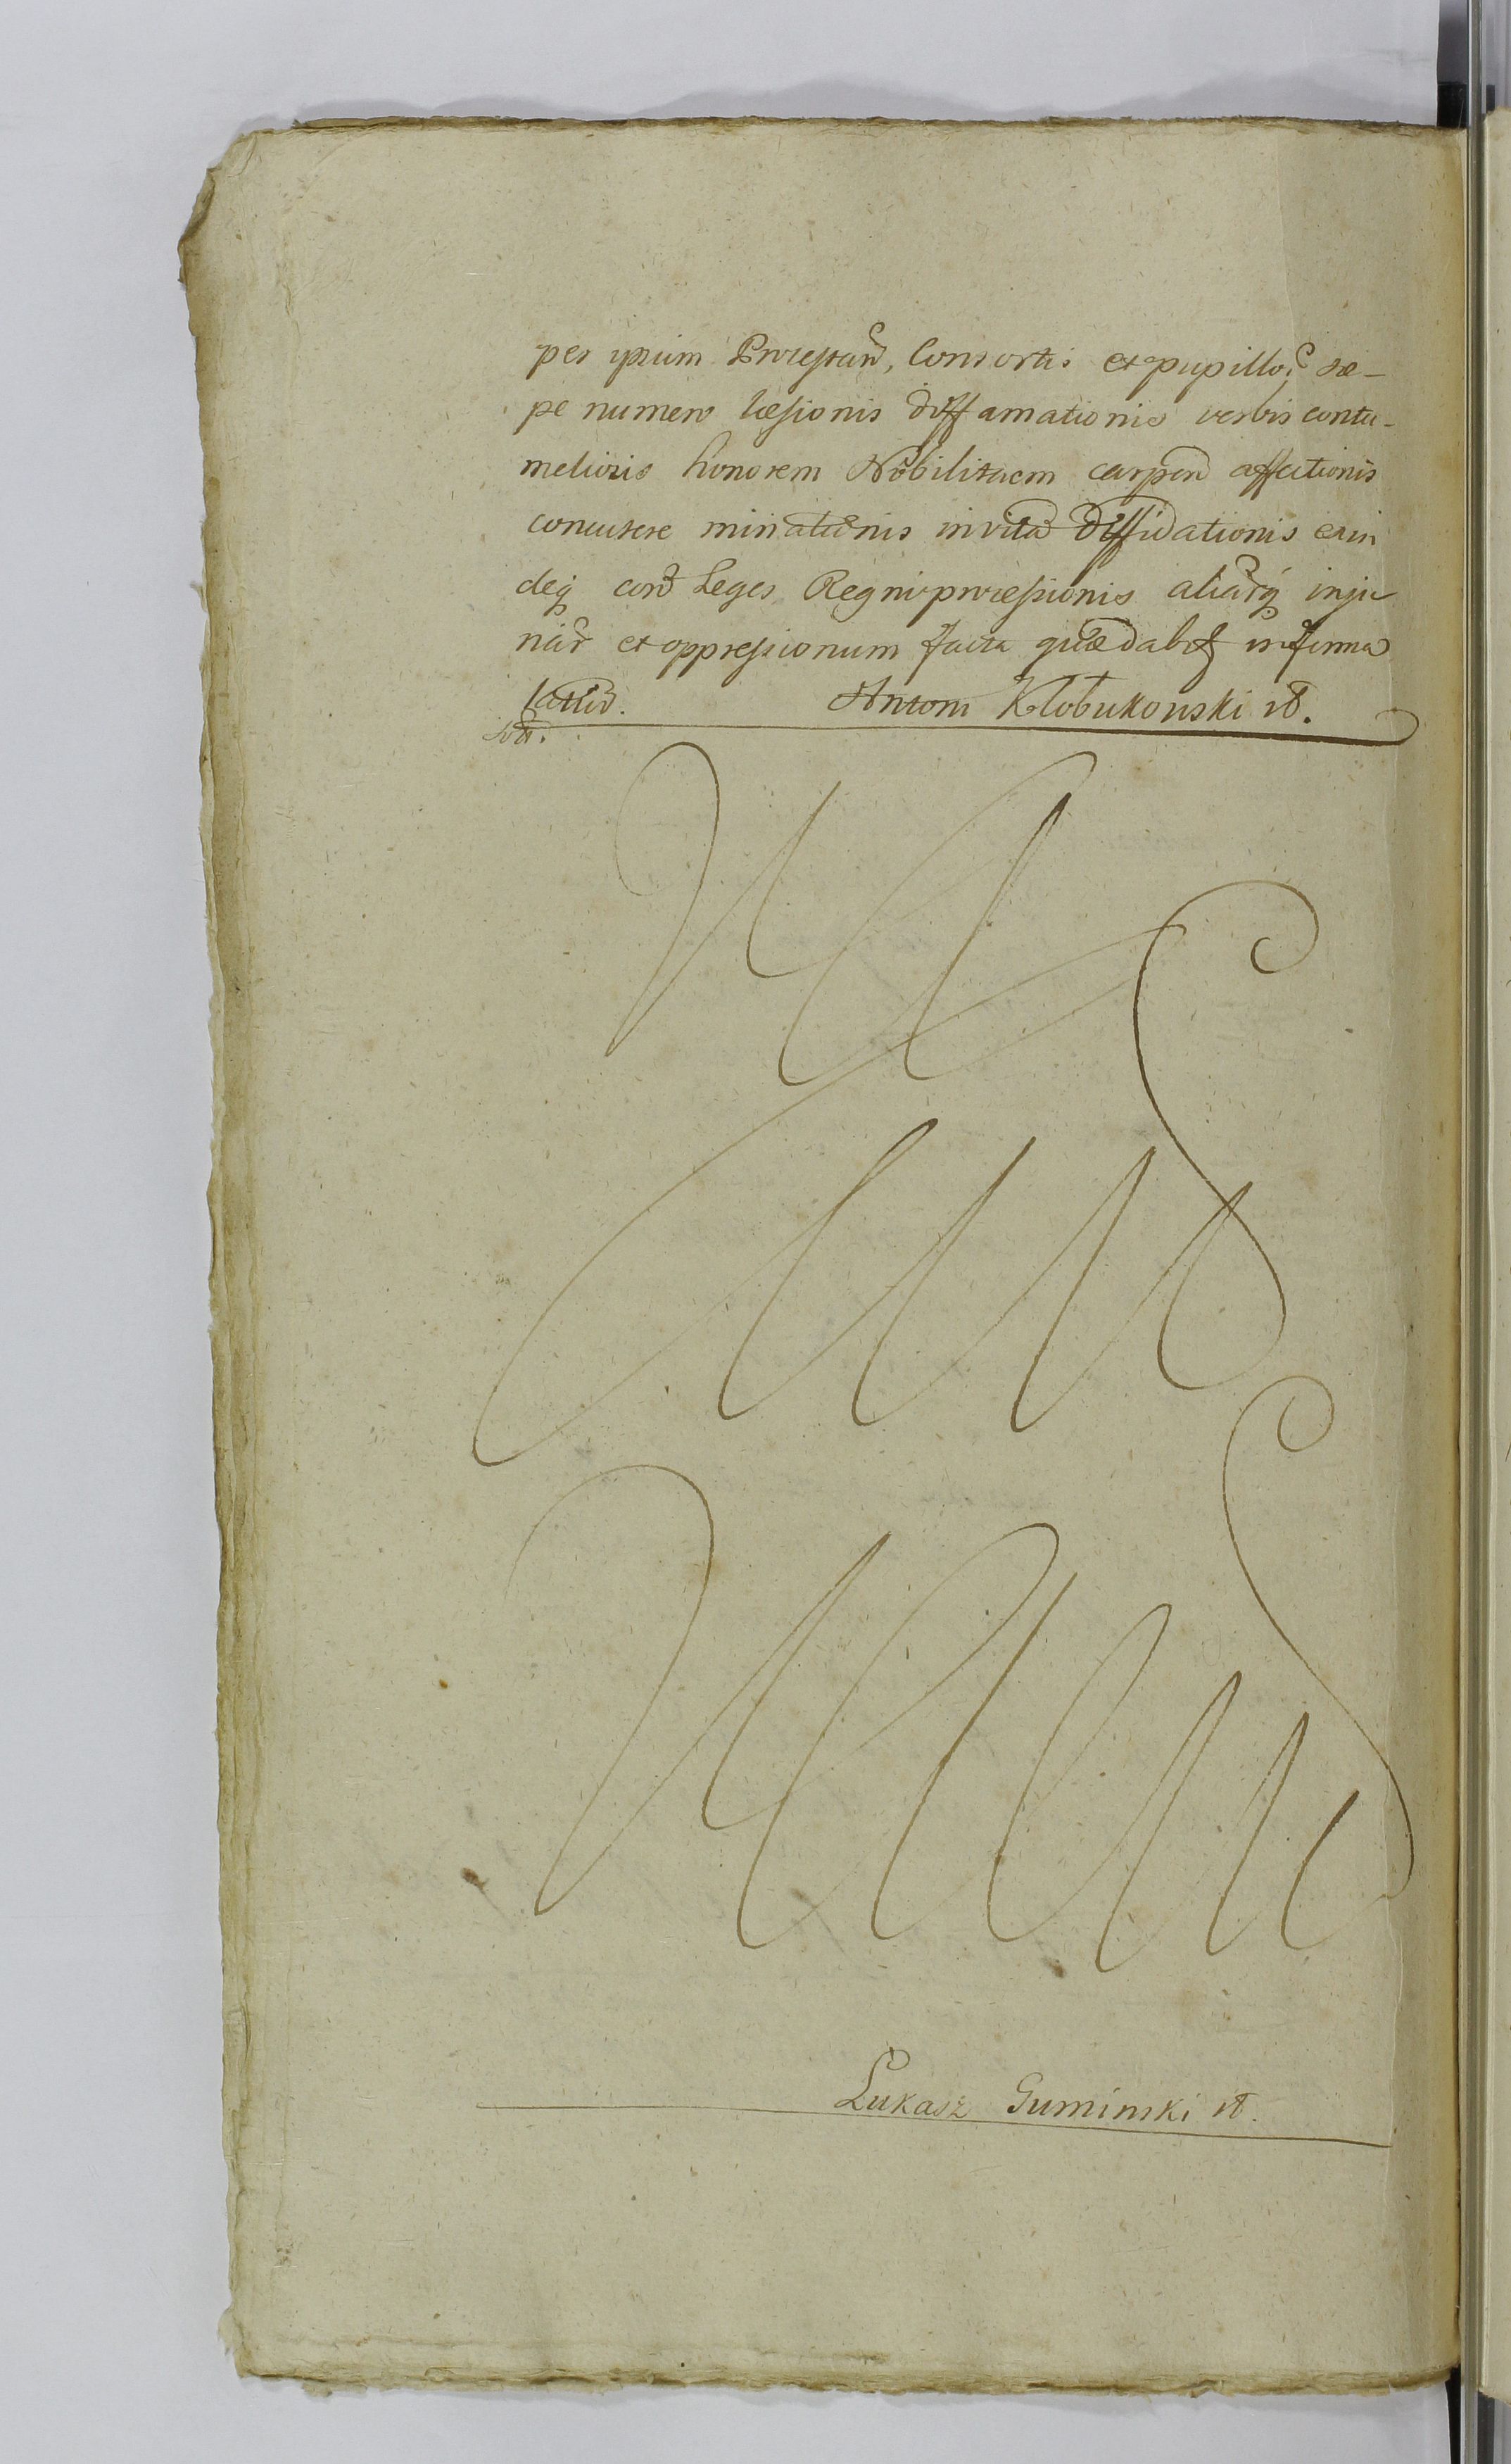 per ipsum Protestan, Consortis et pupillor sæ-
pe numero læsionis diffamationis verbis contu-
meliosis honorem Nobilitaem carpen affectionis
concutere minationis in vita diffidationis exin
deq con Leges Regni processionis aliarq inju
riar et oppressionum facta quædab in forma
latius. Antoni Kłobukowski
Łukasz Gumiński